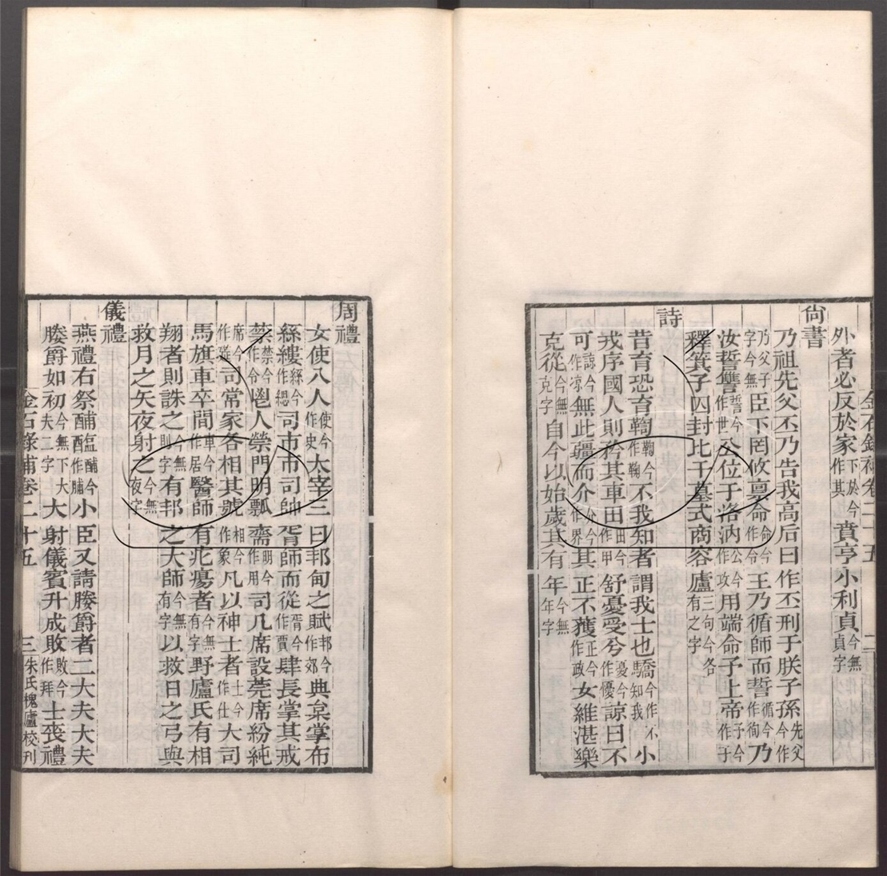 外者必反於家下於今作其賁亨小利貞今無貞字
尙書
乃祖先父丕乃告我高后曰作丕刑于朕子孫先父今作
乃父子字今無臣下罔攸稟命命今作令王乃循師而誓循今作徇乃
汝誓讐誓今作世公位于洛汭公今作攻用端命予上帝予今作于
釋箕子囚封比干墓式商容廬三句今各有之字
詩
昔育恐育鞫鞫今作鞠不我知者謂我士也驕今作不知我小
戎序國人則矜其車田田今作甲舒憂受兮憂今作優諒曰不
可諒今作凉無此疆而介介今作界其正不獲正今作政女維湛樂
克從今無克字自今以始歲其有年今無年字
金石錄補卷二十五
二
周禮
女使八人使今作史大宰三曰邦甸之賦邦今作郊典枲掌布
緜縷緜今作緦司市市司帥胥師而從胥今作賈肆長掌其戒
禁禁今作令鬯人禜門明瓢齋明今作用司几席設莞席紛純
席今作筵司常家各相其號相今作象凡以神士者士今作仕大司
馬旗車卒間車今作居醫師有兆瘍者今無有字野廬氏有相
翔者則誅之今無則字有邦之大師今無有字以救日之弓與
救月之矢夜射之今無夜字
儀禮
燕禮右祭酺醢酺今作脯小臣又請媵爵者二大夫大夫
媵爵如初今無下大夫二字大射儀賓升成敗敗今作拜士喪禮
金石錄補卷二十五
三
朱氏槐廬校刊